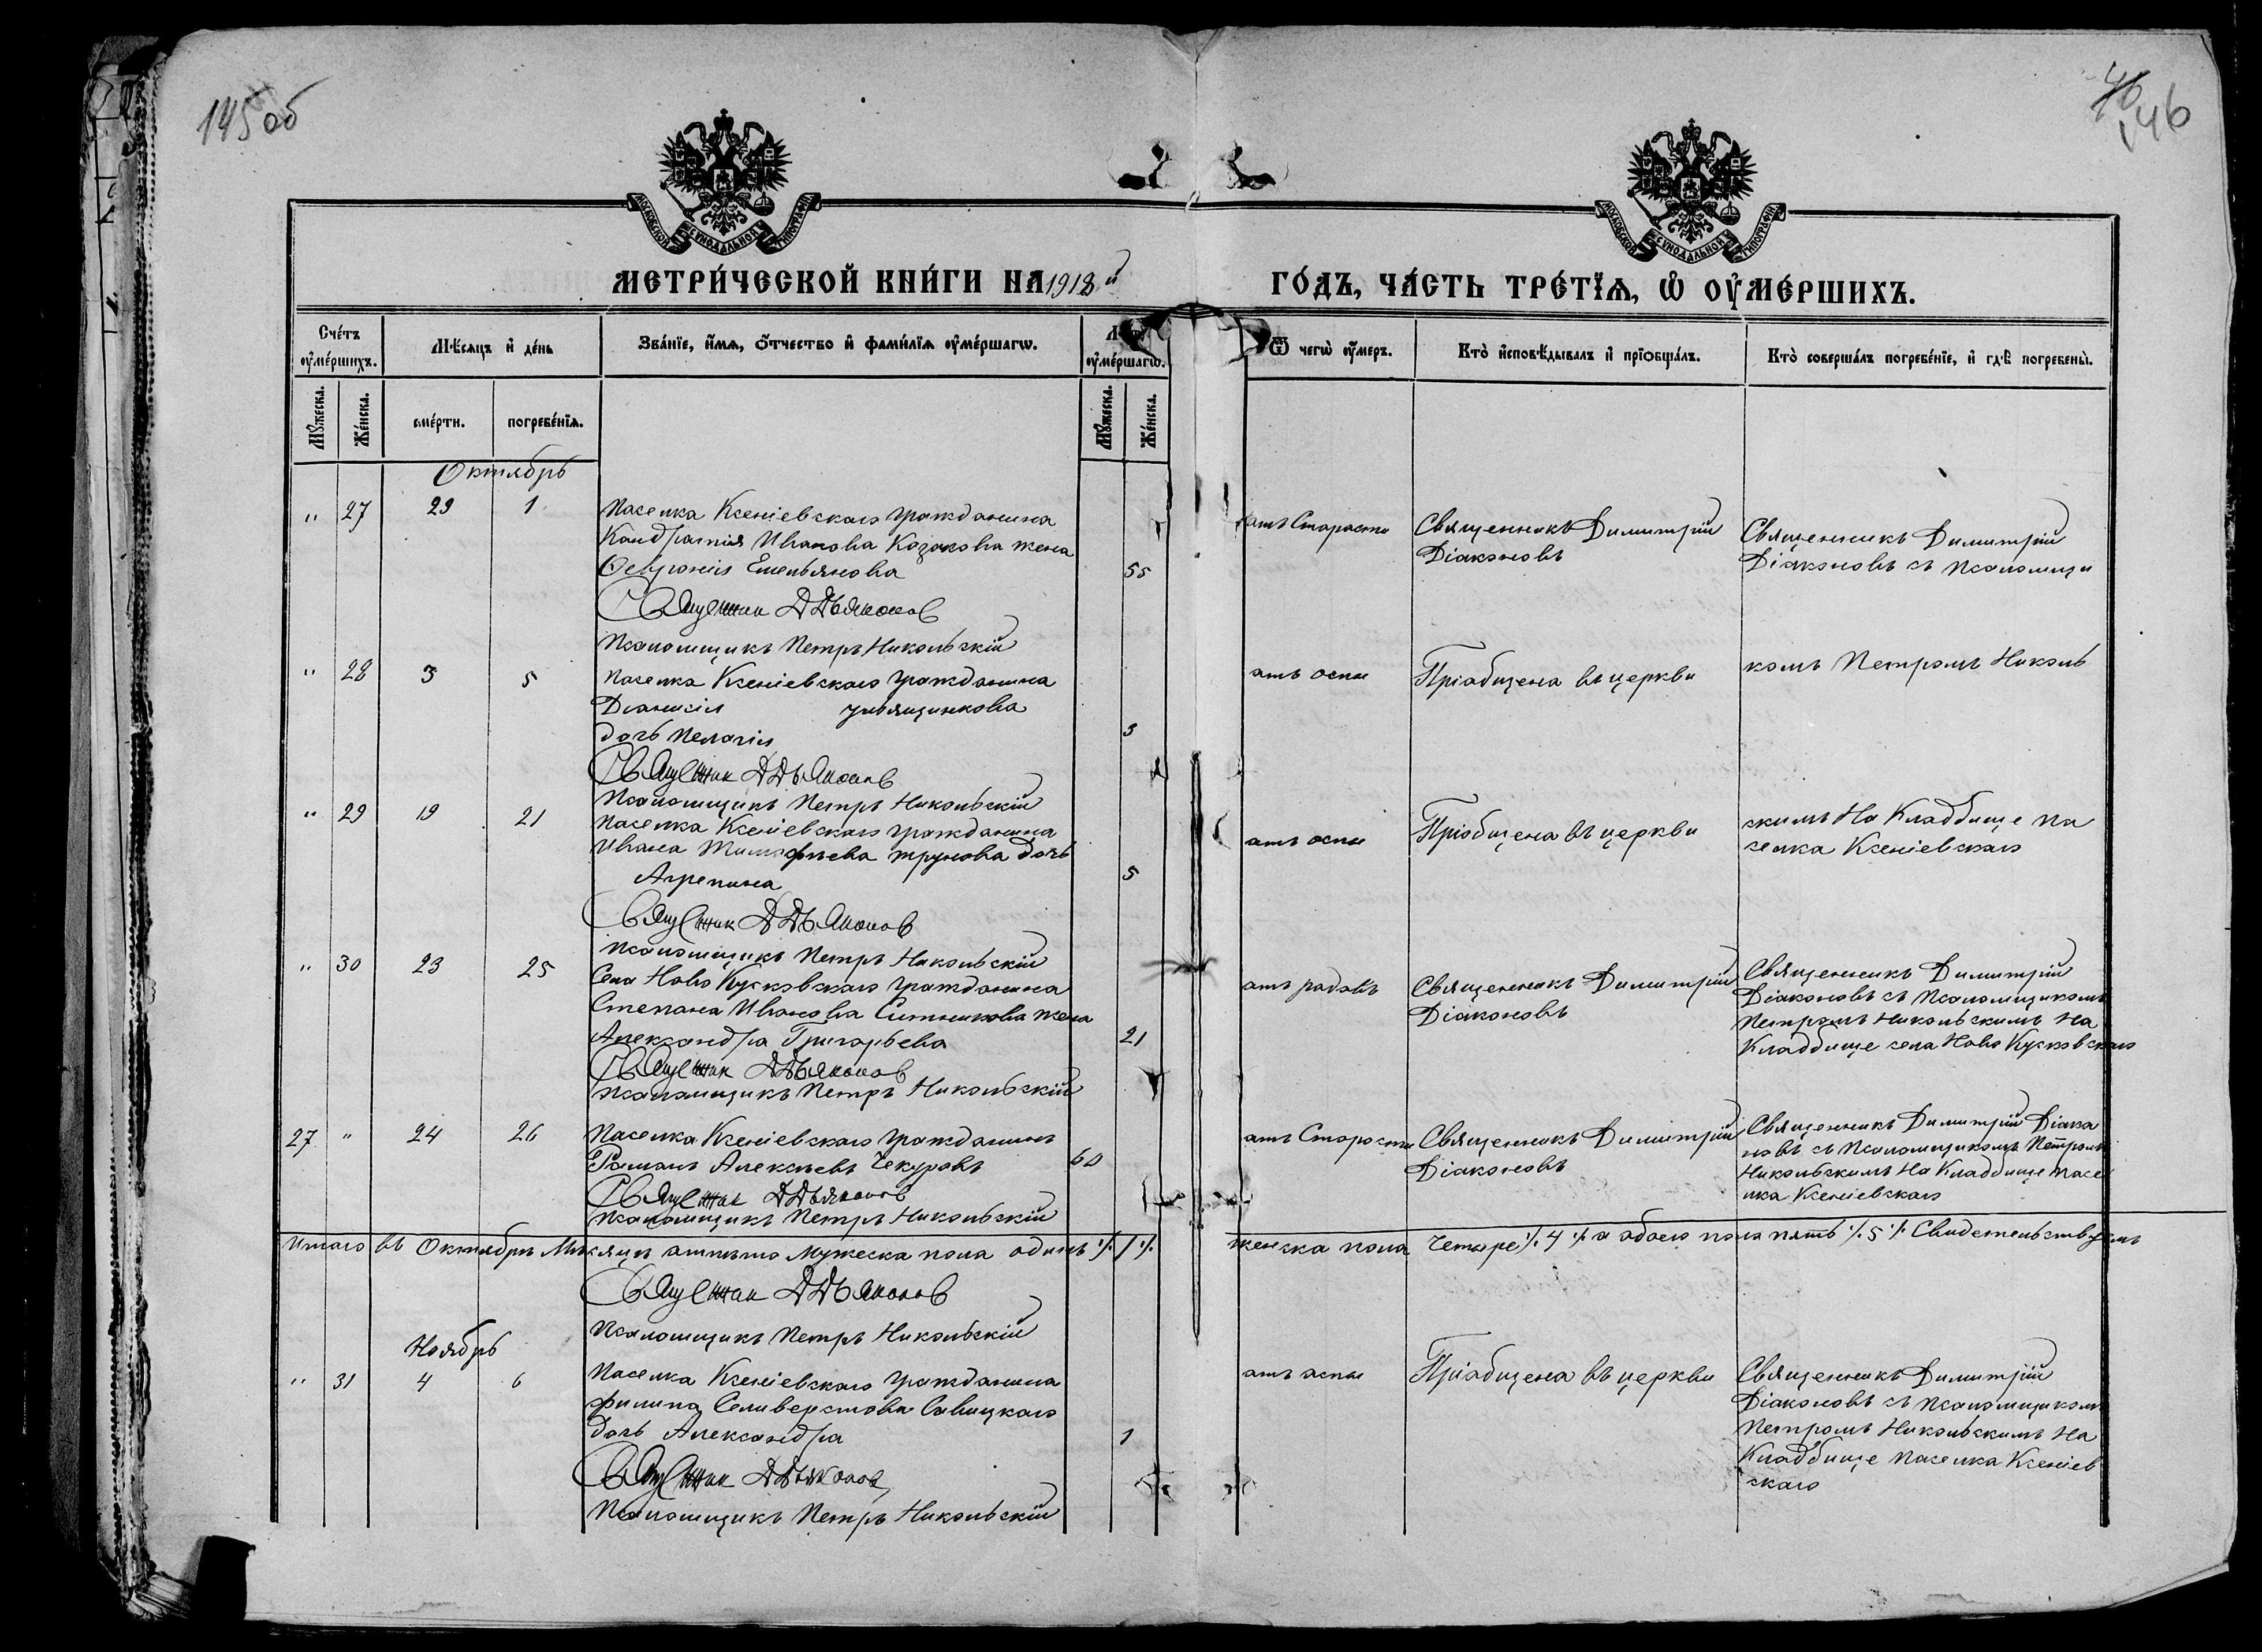 145 об
46
146
МОСКОВСКОЙ СѴНОДАЛЬНОЙ ТИПОГРАФІИ
МОСКОВСКОЙ СѴНОДАЛЬНОЙ ТИПОГРАФІИ
МЕТРИ́ЧЕСКОЙ КНИ́ГИ НА 1918й
ГО́ДЪ, ЧА́СТЬ ТРЕ́ТЇѦ, Ѡ҆ ОУ҆МЕ́РШИХЪ.
Сче́тъ оу҆ме́ршихъ.
Мѣ́сѧцъ и҆ де́нь
Зва́нїе, и҆́мѧ, ѻ҆́тчество и҆ фами́лїѧ оу҆ме́ршагѡ.
Лѣ́та оу҆ме́ршагѡ.
Ѿ чегѡ̀ оу҆́меръ.
Кто̀ и҆сповѣ́дывалъ и҆ прїѻбща́лъ.
Кто̀ соверша́лъ погребе́нїе, и҆ гдѣ̀ погребены̀.
Мꙋ́жеска.
Же́нска.
сме́рти.
погребе́нїѧ.
Мꙋ́жеска.
Же́нска.
Октябрь
" 27 29 1
Паселка Ксеніевскаго гражданина
Кандратія Иванова Козакова жена
Февронія Емельянова 55
Священник Д Дьяконов
Псаломщикъ Петръ Никольскій
атъ Старасти
Священникъ Димитрій
Діаконовъ
Священникъ Димитрій
Діаконовъ съ псаломщи
" 28 3 5
Паселка Ксеніевскаго гражданина
Діанисія
дочь Пелагія 3
Священник Д Дьяконов
Псаломщикъ Петръ Никольскій
атъ оспы
Пріабщена въ церкви
комъ Петромъ Николь
" 29 19 21
Паселка Ксеніевскаго гражданина
Ивана Тимофѣева трунова дочь
Агрепина 5
Священник Д Дьяконов
Псаломщикъ Петръ Никольскій
атъ оспы
Пріобщена въ церкви
скимъ На Кладбище па
селка Ксеніевскаго
" 30 23 25
Села Ново Кусковскаго гражданина
Степана Иванова Ситникова жена
Александра Григорьева 21
Священник Д Дьяконов
Псаломщикъ Петръ Никольскій
атъ радовъ
Священникъ Димитрій
Діаконовъ
Священникъ Димитрій
Діаконовъ съ псаломщикомъ
Петромъ Никольскимъ На
Кладбище села Ново Кусковскаго
27 " 24 26
Паселка Ксеніевскаго гражданинъ
Раманъ Алексѣевъ Чекуровъ 60
Священник Д Дьяконов
Псаломщикъ Петръ Никольскій
атъ Старости
Священникъ Димитрій
Діаконовъ
Священникъ Димитрій Діака
новъ съ псаломщикомъ Петромъ
Никольскимъ На Кладбище пасе
лка Ксеніевскаго
Итаго въ Октябрѣ Мѣсяцѣ атпѣто Мужеска пола одинъ ·/. 1 ·/.
женска пола Четыре ·/. 4 ·/. а обоего пола пять ·/. 5 ·/. Свидетельствуемъ
Священник Д Дьяконов
Псаломщикъ Петръ Никольскій
Ноябрь
" 31 4 6
Паселка Ксеніевскаго гражданина
Филипа Селиверстова Савицкаго
дочь Александра 1
Священник Д Дьяконов
Псаломщикъ Петръ Никольскій
атъ аспы
Пріабщена въ церкви
Священникъ Димитрій
Діаконовъ съ псаломщикомъ
Петромъ Никольскимъ На
Кладбище паселка Ксеніев
скаго